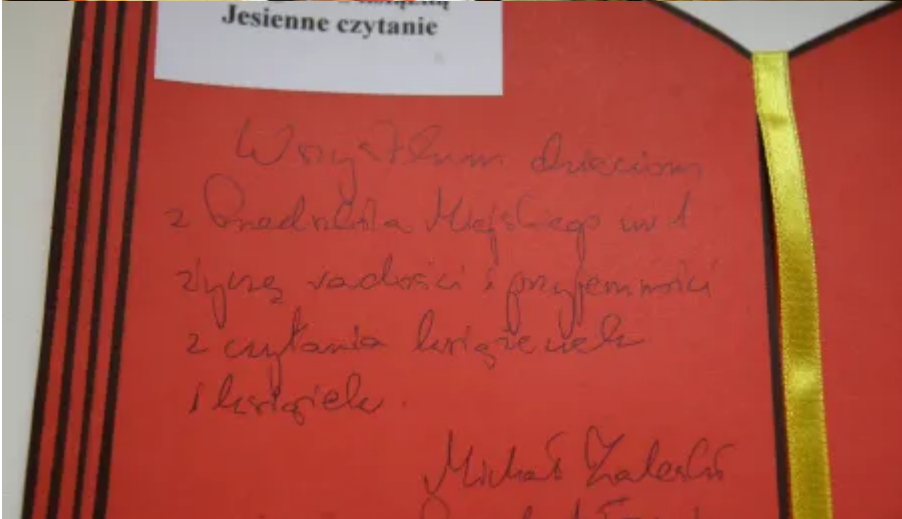 Jesienne czytanie
Wszystkim dzieciom
z Przedszkola Miejskiego nr 1
życzę radości i przyjemności
z czytania książeczek
i książek.
Michał Zaleski